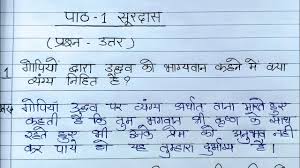 पाठ-1 सूरदास
(प्रश्न - उत्तर)
1 गोपियों द्वारा उद्धव को भाग्यवान कहने में क्या
व्यंग्य निहित है?
गोपियां उद्धव पर व्यंग्य अर्थात ताना मारते हुए
कहती हैं कि तुम भगवान श्री कृष्ण के साथ
रहते हुए भी उनके प्रेम को अनुभव नहीं
कर पाये हो यह तुम्हारा दुर्भाग्य है।